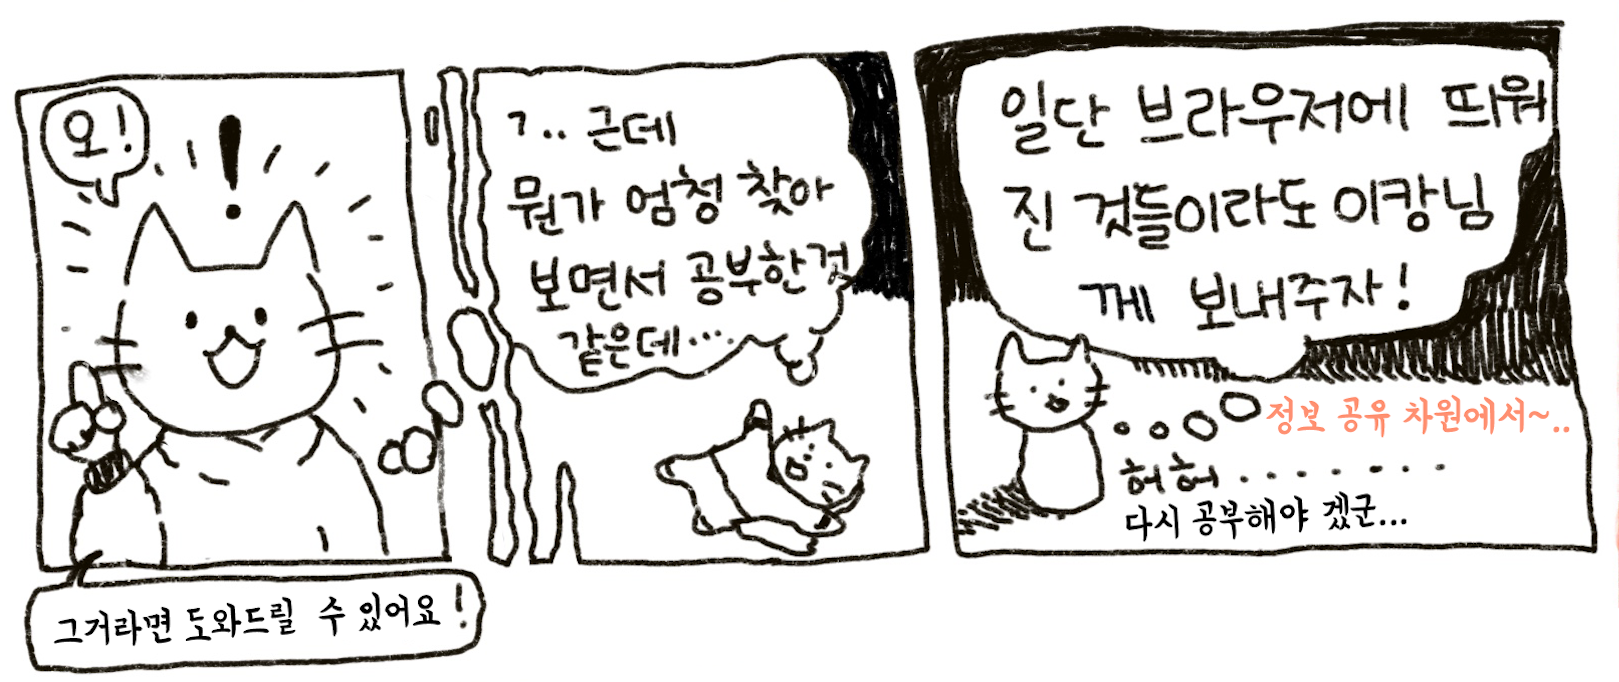 오!
그거라면 도와드릴 수 있어요!
ㄱ.. 근데
뭔가 엄청 찾아
보면서 공부한것
같은데...
일단 브라우저에 띄워
진 것들이라도 이캉님
께 보내주자!
정보 공유 차원에서~..
허허.......
다시 공부해야 겠군...